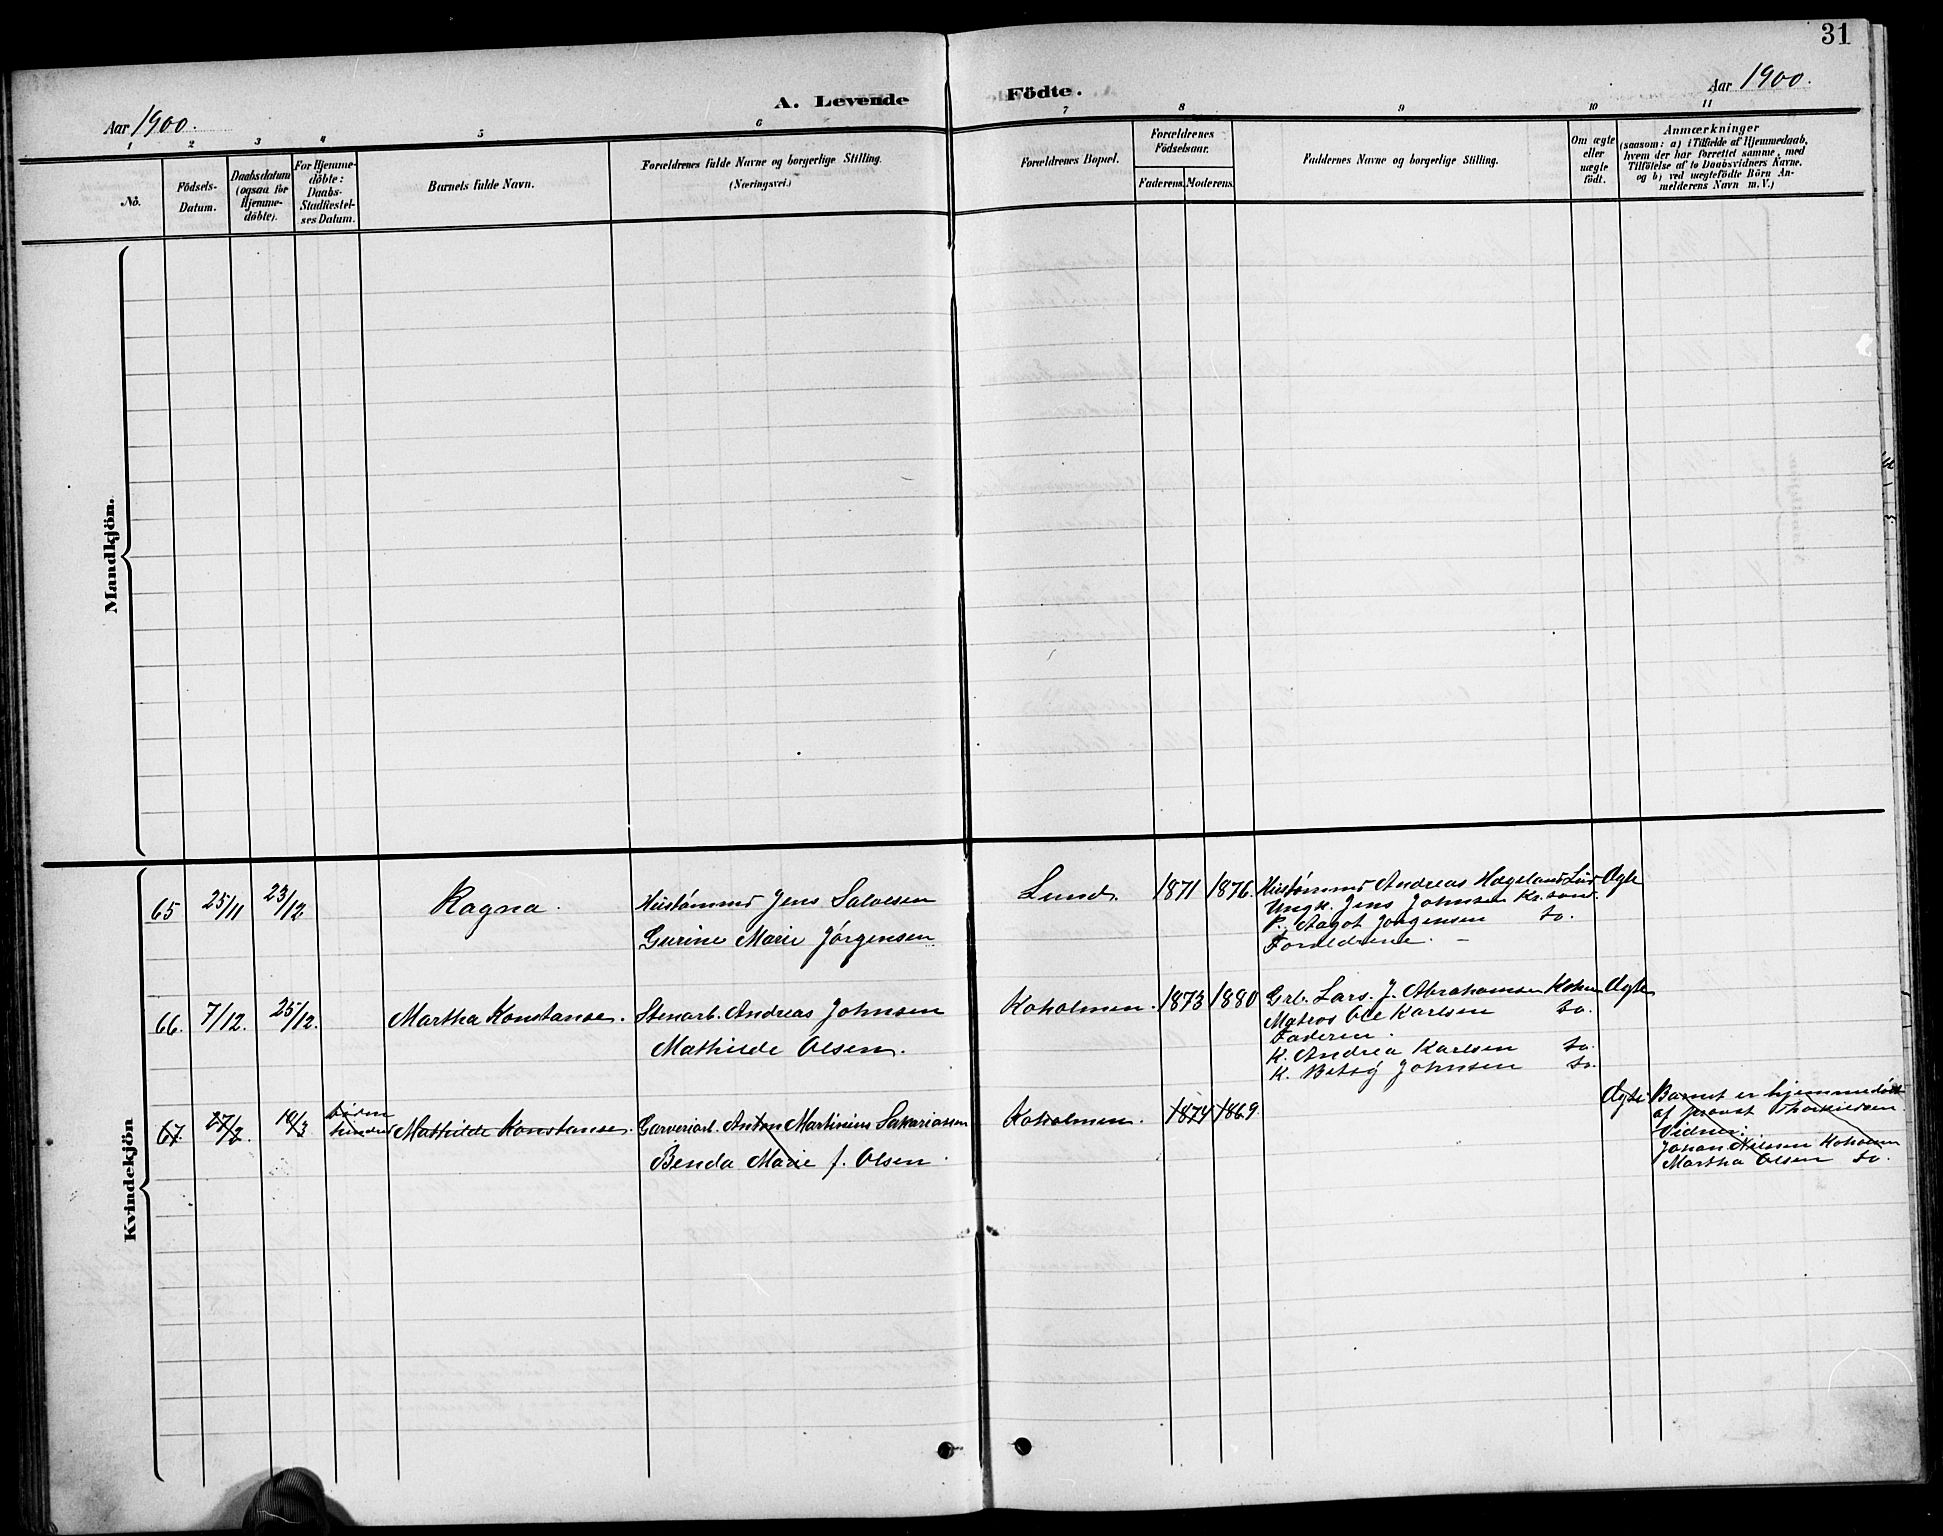 31
Aar 1900.
A. Levende Födte.
Aar 1900.
1 2 3 4 5 6 7 8 9 10 11
No.
Födsels-
Datum.
Daabsdatum
(ogsaa for
Hjemme-
döbte).
For Hjemme-
döbte:
Daabs-
Stadfestel-
ses Datum.
Barnets fulde Navn.
Forældrenes fulde Navne og borgerlige Stilling.
(Næringsvei.)
Forældrenes Bopæl.
Forældrenes
Födselsaar.
Faderens. Moderens.
Faddernes Navne og borgerlige Stilling.
Om ægte
eller
uægte
födt.
Anmærkninger
(saasom: a) i Tilfælde af Hjemmedaab,
hvem der har forrettet samme, med
Tilföielse af to Daabsvidners Navne,
og b) ved uægtefödte Börn An-
melderens Navn m. V.)
Mandkjön.
Kvindekjön
65 25/11 23/12 Ragna.
Jens Salvesen
Gurine Marie Jørgensen
Lund. 1871 1876.
Andreas Hageland
Ungk. Jens Johnsen
P. Aagot Jørgensen do.
Forældrene. —
Ægte
66. 7/12. 25/12. Martha Konstanse.
Stenarb. Andreas Johnsen
Mathilde Olsen.
Koholmen. 1873 1880
Lars. J. Abrahamsen
Matros Ole Karlsen do.
Faderen.
K. Andrea Karlsen do.
K. Betsy Johnsen do.
Ægte
67. 27/2 18/3 Mathilde Konstanse.
Garveriarb. Anton Martinius Sakariassen
Benda Marie f. Olsen.
Koholmen. 1874 1869.
Ægte
Barnet er hjemmedøbt
af provst
Vidner:
Johan Nilsen Koholmen
Martha Olsen do.